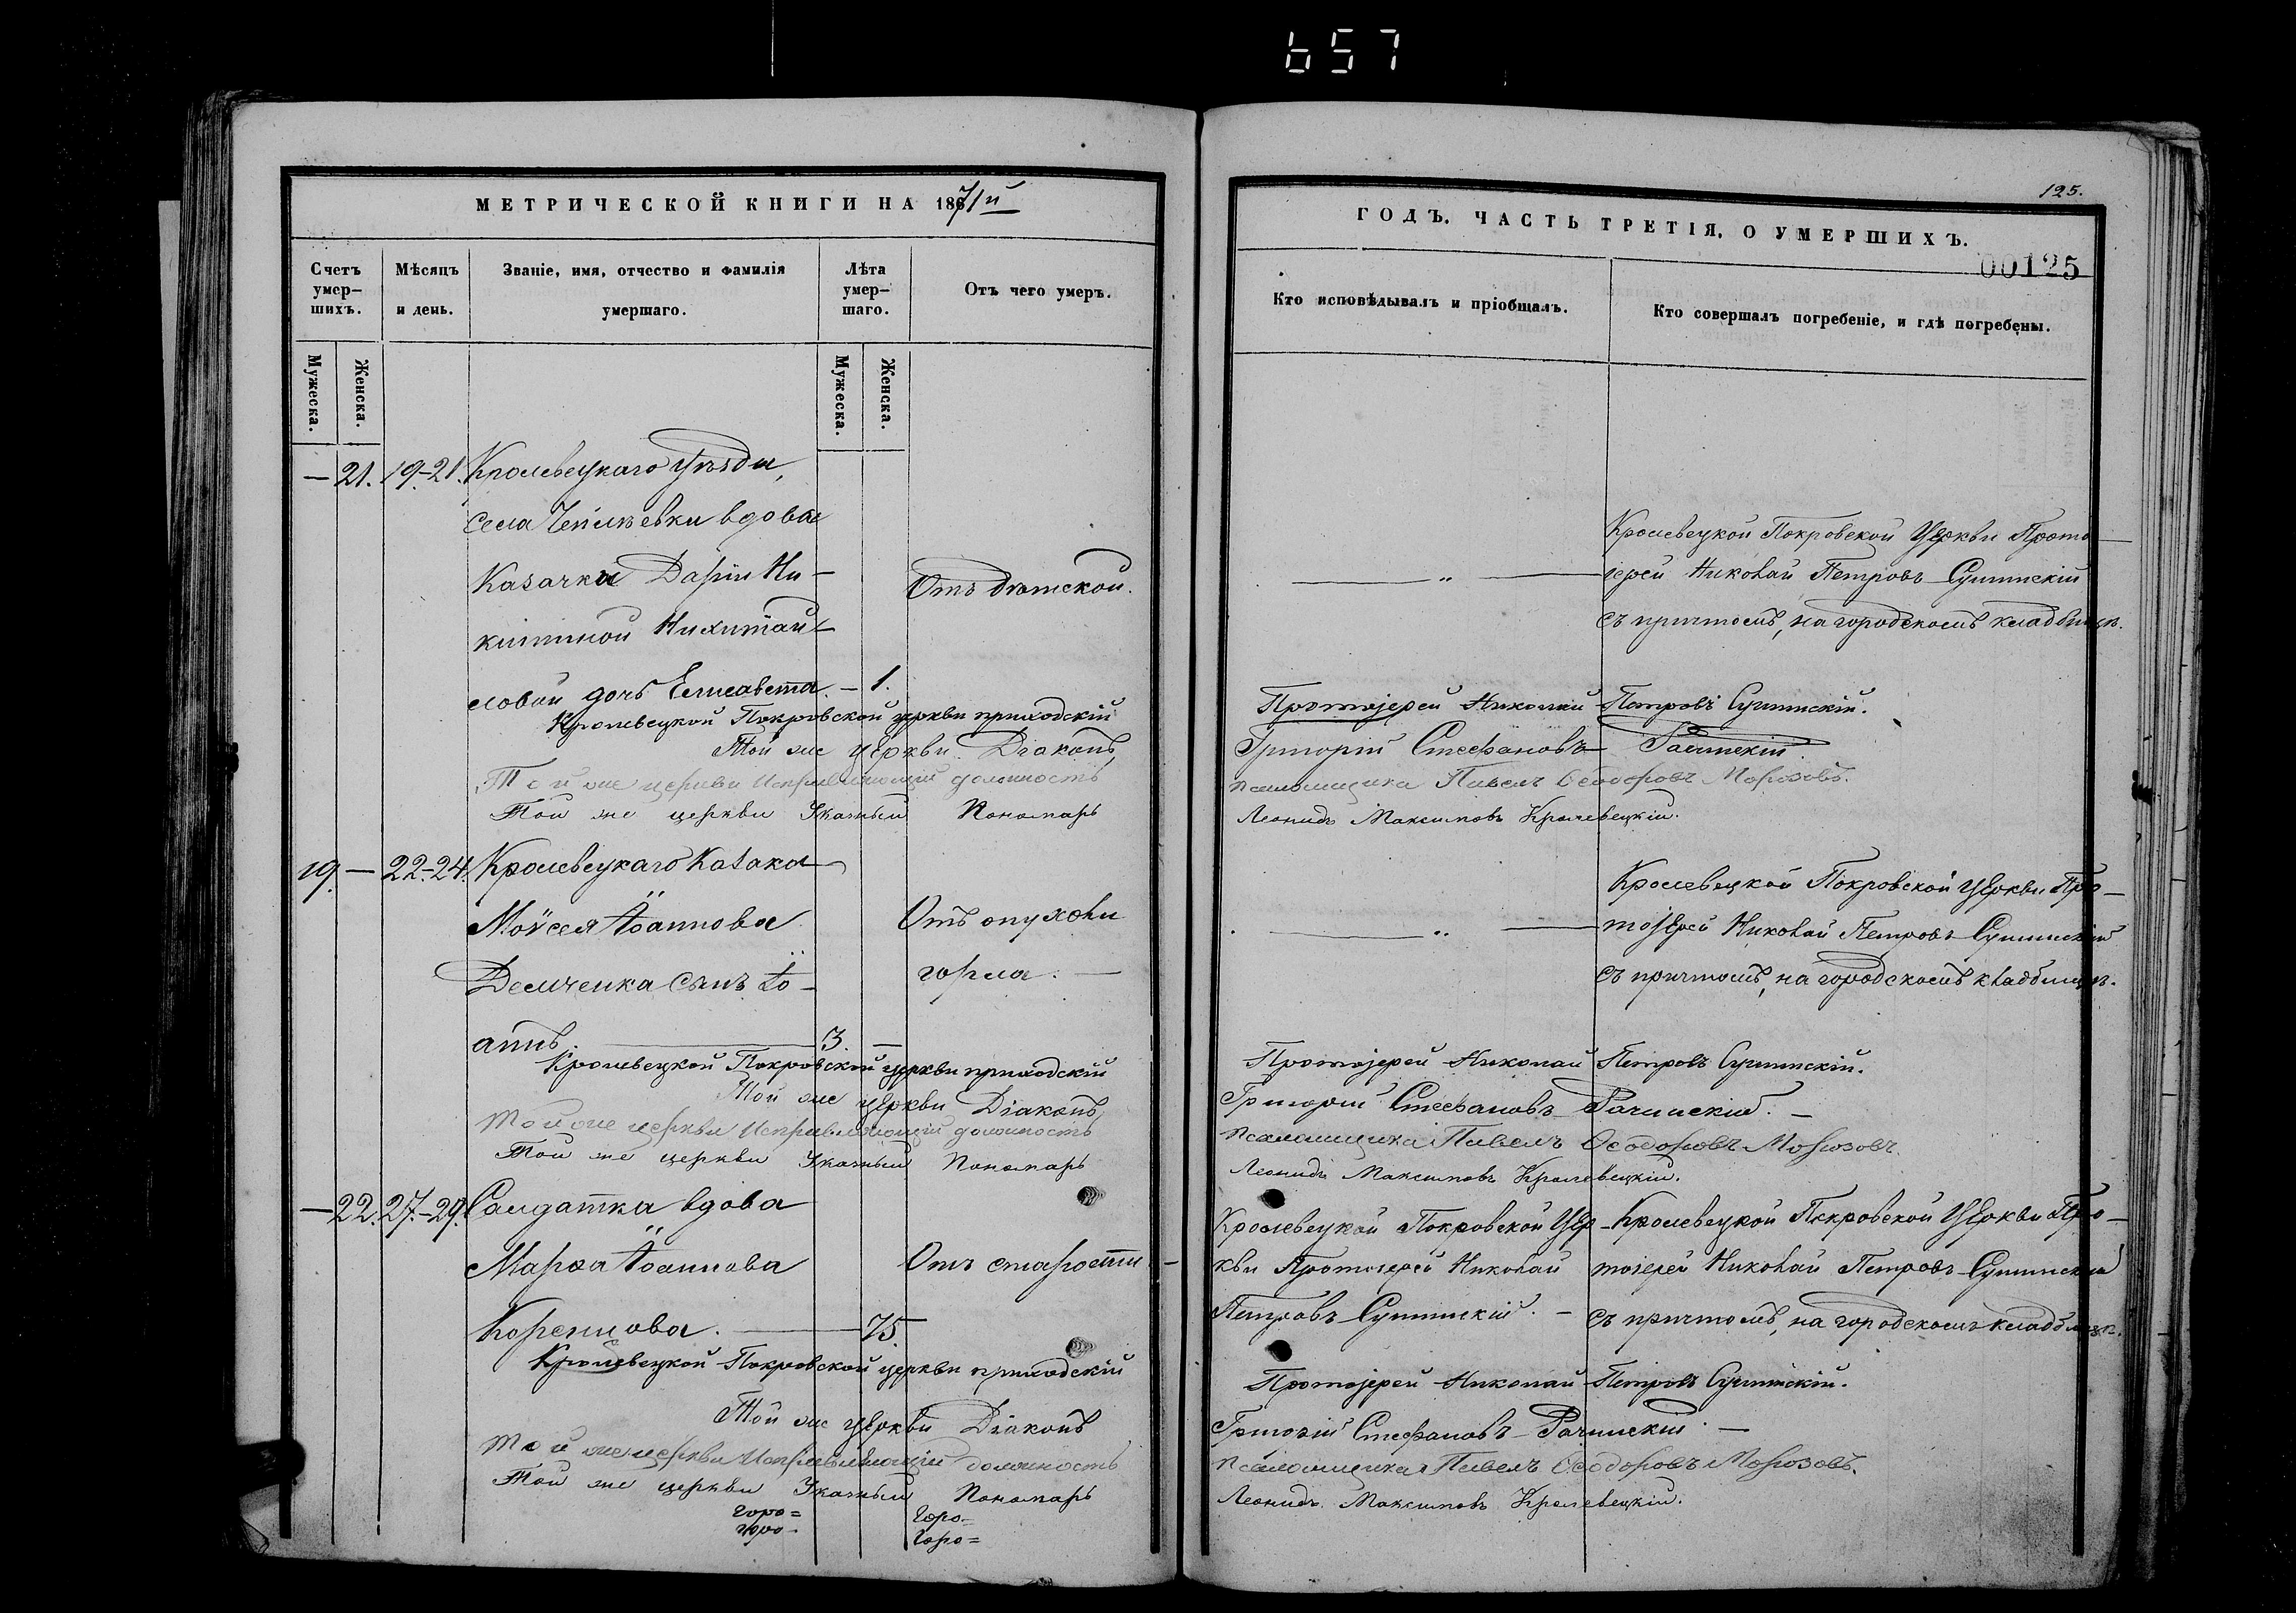 657
МЕТРИЧЕСКОЙ КНИГИ НА 1871й
Счетъ умер-шихъ.
Мѣсяцъ и день.
Званіе, имя, отчество и фамилія умершаго.
Лѣта умер-шаго.
Отъ чего умеръ.
Мужеска.
Женска.
Мужеска.
Женска.
— 21. 19-21. Кролевецкаго уѣзда,
села вдовы
Казачки Даріи Ни-
китиной Михитай-
Отъ дѣтской.
ловой дочь Елисавета. — 1.
Кролевецкой Покровской церкви приходскій
Той же церкви Діаконъ
Той же церкви Исправляющій должность
Той же церкви Указный Пономарь
19. — 22-24. Кролевецкаго Козака
Моѵсея Іоаннова
Отъ опухоли
Демченка сынъ Іо-
горла. —
аннъ. — 3. —
Кролевецкой Покровской церкви приходскій
Той же церкви Діаконъ
Той же церкви Исправляющій должность
Той же церкви Указный Пономарь
— 22. 27-29. Салдатка вдова
Марѳа Іоаннова
Отъ старости. —
Коренцова. — 75
Кролевецкой Покровской церкви приходскій
Той же церкви Діаконъ
Той же церкви Исправляющій должность
Той же церкви Указный Пономарь
горо= Горо=
горо- Горо=
125.
ГОДЪ. ЧАСТЬ ТРЕТІЯ, О УМЕРШИХЪ.
00125
Кто исповѣдывалъ и пріобщалъ.
Кто совершалъ погребеніе, и гдѣ погребены.
Кролевецкой Покровской Церкви Прото-
— „ — іерей Николай Петровъ Сулимскій
съ причтомъ, на городскомъ кладбищѣ.
Протоіерей Николай Петровъ Сулимскій.
Григорій Стефановъ Рачинскій
псаломщика Павелъ Ѳеодоровъ Морозовъ.
Леонидъ Максимовъ Кролевецкій.
Кролевецкой Покровской Церкви Про-
— „ — тоіерей Николай Петровъ Сулимскій
съ причтомъ, на городскомъ кладбищѣ.
Протоіерей Николай Петровъ Сулимскій.
Григорій Стефановъ Рачинскій. —
псаломщика Павелъ Ѳеодоровъ Морозовъ.
Леонидъ Максимовъ Кролевецкій.
Кролевецкой Покровской Цер-
кви Протоіерей Николай
Петровъ Сулимскій. —
Кролевецкой Покровской Церкви Про-
тоіерей Николай Петровъ Сулимскій
съ причтомъ, на городскомъ кладбищѣ.
Протоіерей Николай Петровъ Сулимскій.
Григорій Стефановъ Рачинскій. —
псаломщика Павелъ Ѳеодоровъ Морозовъ.
Леонидъ Максимовъ Кролевецкій.